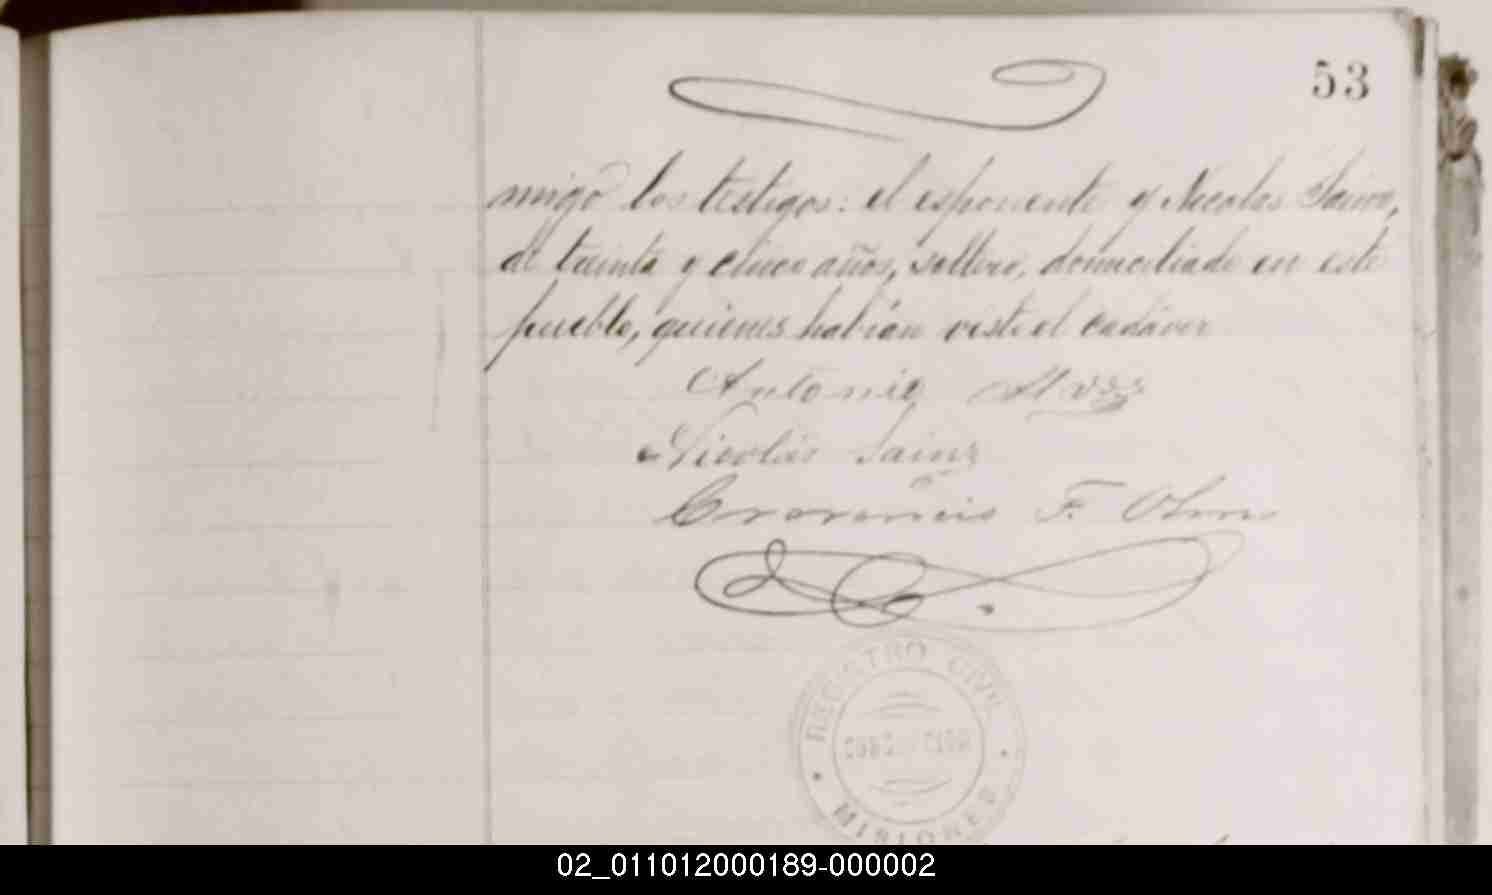 53
migo los testigos: el esponente y Nicolas Sainz,
de treinta y cinco años, soltero, domiciliado en este
pueblo, quienes habian visto el cadáver
Antonio
Nicolás Sainz
F.
REGISTRO CIVIL
CONCEPCION
MISIONES
02_011012000189-000002